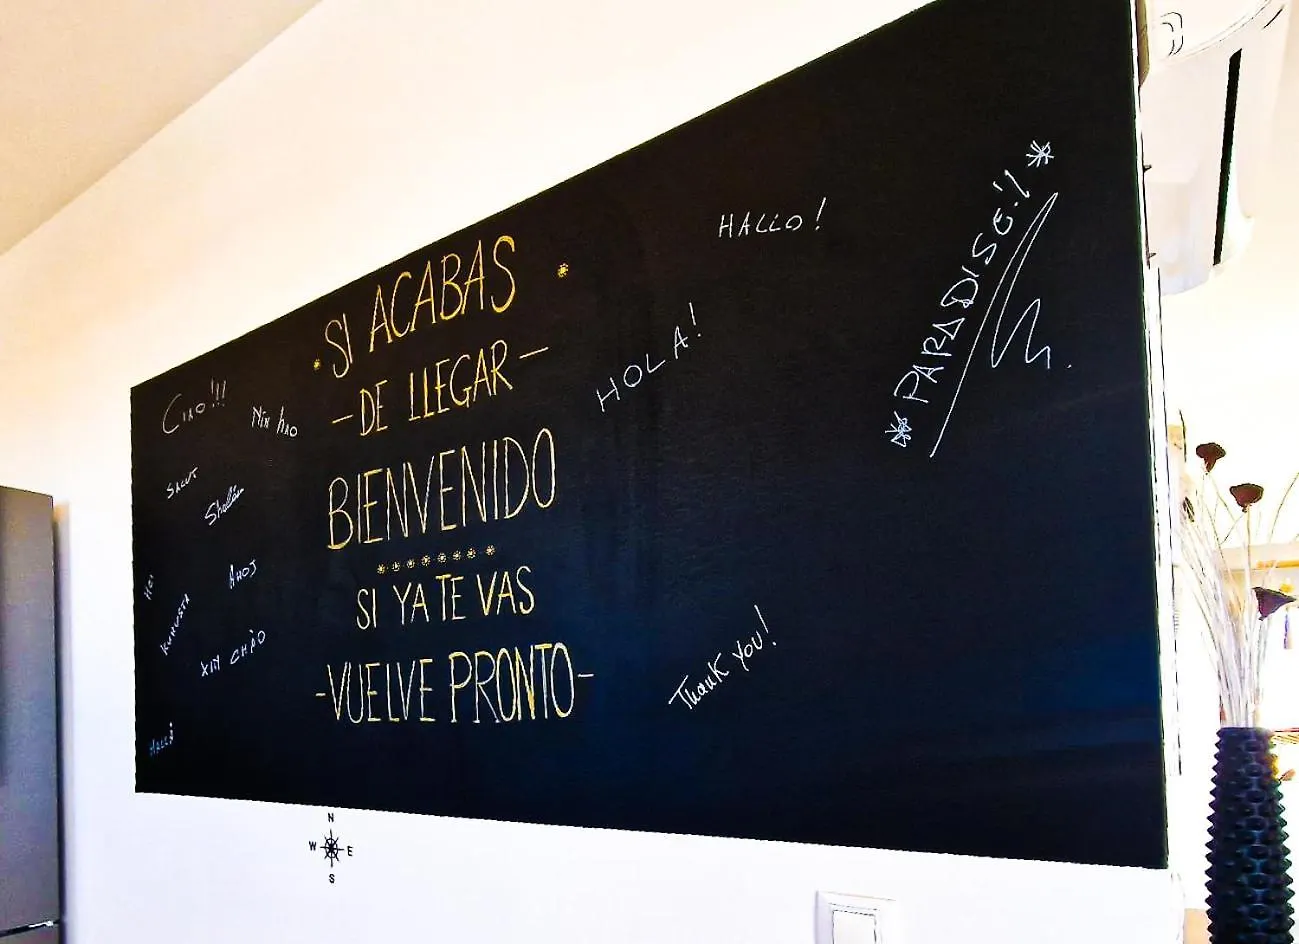 SI ACABAS
- DE LLEGAR -
BIENVENIDO
SI YA TE VAS
- VUELVE PRONTO -
CIAO!!!
Nin hao
SALUT
AHOJ
XIN CHÀO
HALLO!
HOLA!
*PARADISO!*
Thank you!
N
W E
S